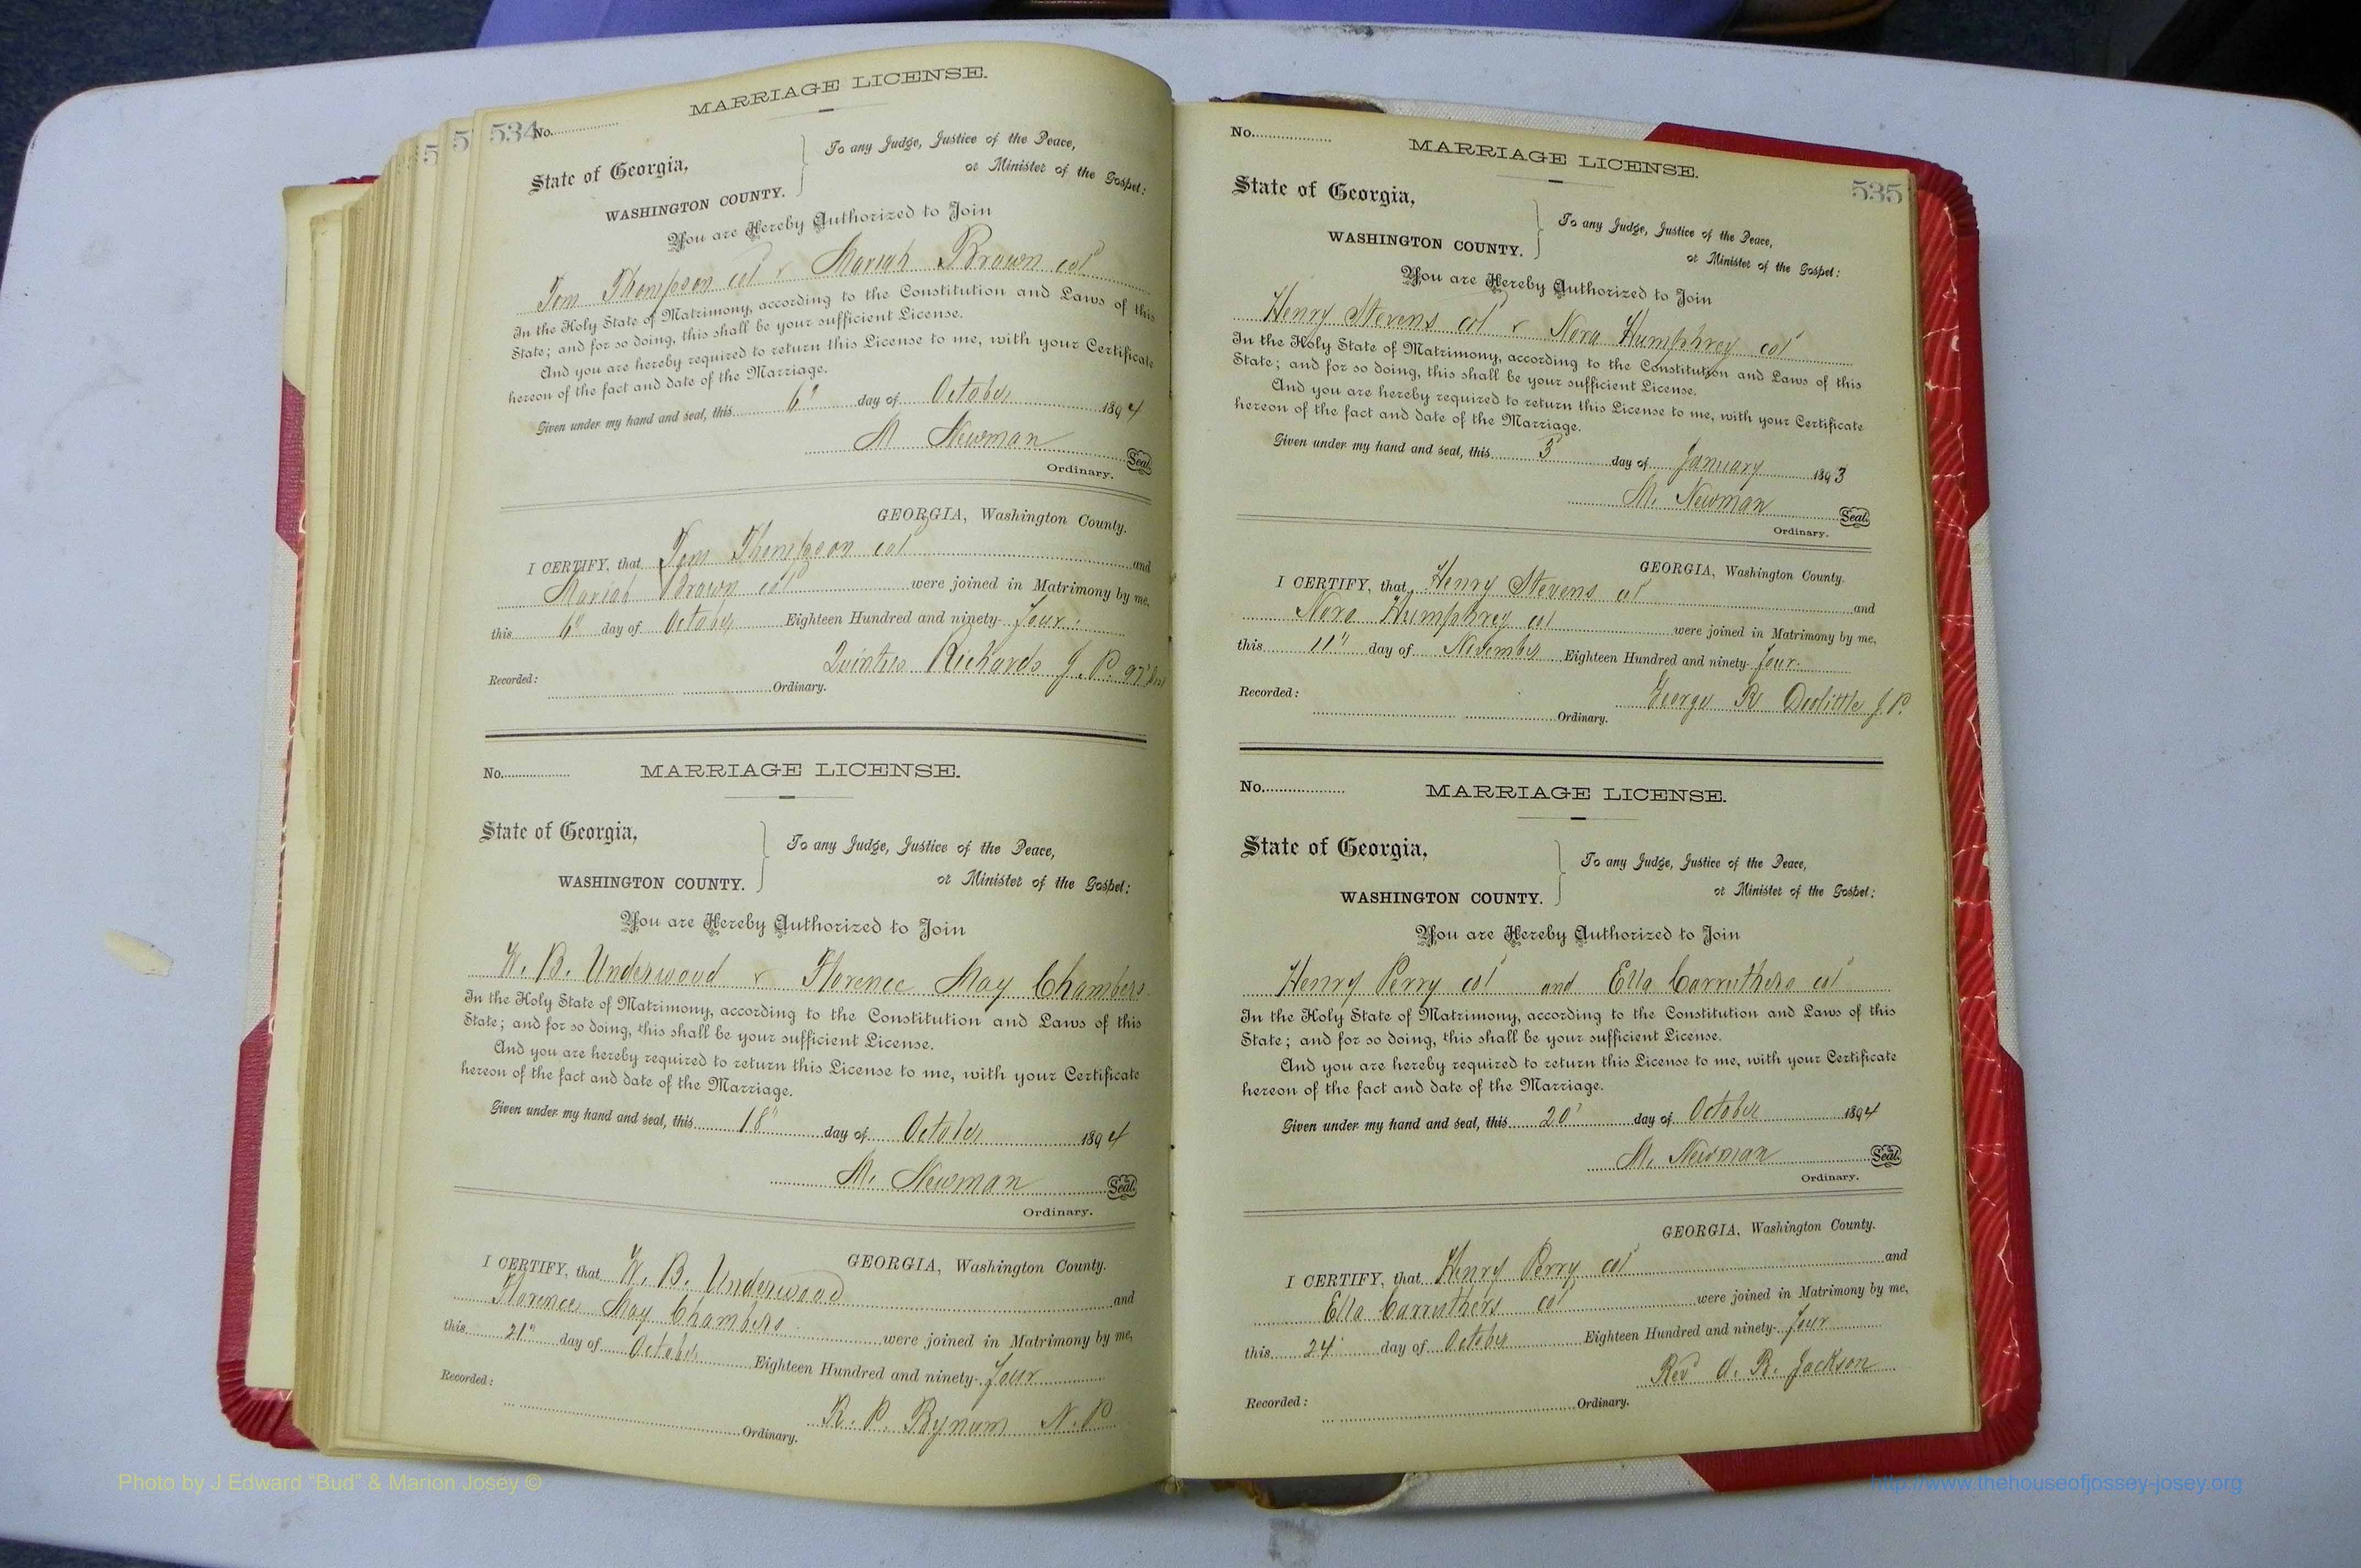 5
5
534
No.
MARRIAGE LICENSE.
State of Georgia,
WASHINGTON COUNTY.
To any Judge, Justice of the Peace,
or Minister of the Gospel:
You are Hereby Authorized to Join
Tom Thompson col & Mariah Brown col
In the Holy State of Matrimony, according to the Constitution and Laws of this
State; and for so doing, this shall be your sufficient License.
And you are hereby required to return this License to me, with your Certificate
hereon of the fact and date of the Marriage.
Given under my hand and seal, this 6" day of October 1894
M Newman Seal.
Ordinary.
GEORGIA, Washington County.
I CERTIFY, that Tom Thompson col and
Mariah Brown col were joined in Matrimony by me,
this 6" day of October Eighteen Hundred and ninety- four.
Quintus Richards J. P. 97
Recorded: Ordinary.
No. MARRIAGE LICENSE.
State of Georgia,
WASHINGTON COUNTY.
To any Judge, Justice of the Peace,
or Minister of the Gospel:
You are Hereby Authorized to Join
W. B. Underwood & Florence May Chambers
In the Holy State of Matrimony, according to the Constitution and Laws of this
State; and for so doing, this shall be your sufficient License.
And you are hereby required to return this License to me, with your Certificate
hereon of the fact and date of the Marriage.
Given under my hand and seal, this 18" day of October 1894
M. Newman Seal.
Ordinary.
GEORGIA, Washington County.
I CERTIFY, that W. B. Underwood and
Florence May Chambers were joined in Matrimony by me,
this 21" day of October Eighteen Hundred and ninety- four
Recorded: Ordinary.
R. P. Bynum N. P.
No.
MARRIAGE LICENSE.
535
State of Georgia,
WASHINGTON COUNTY.
To any Judge, Justice of the Peace,
or Minister of the Gospel:
You are Hereby Authorized to Join
Henry Stevens col & Nora Humphrey col
In the Holy State of Matrimony, according to the Constitution and Laws of this
State; and for so doing, this shall be your sufficient License.
And you are hereby required to return this License to me, with your Certificate
hereon of the fact and date of the Marriage.
Given under my hand and seal, this 3 day of January 1893
M. Newman Seal.
Ordinary.
GEORGIA, Washington County.
I CERTIFY, that Henry Stevens col and
Nora Humphrey col were joined in Matrimony by me,
this 11" day of November Eighteen Hundred and ninety- four.
George R Doolittle J. P.
Recorded: Ordinary.
No. MARRIAGE LICENSE.
State of Georgia,
WASHINGTON COUNTY.
To any Judge, Justice of the Peace,
or Minister of the Gospel:
You are Hereby Authorized to Join
Henry Perry col and Ella Carruthers col
In the Holy State of Matrimony, according to the Constitution and Laws of this
State; and for so doing, this shall be your sufficient License.
And you are hereby required to return this License to me, with your Certificate
hereon of the fact and date of the Marriage.
Given under my hand and seal, this 20' day of October 1894
M. Newman Seal.
Ordinary.
GEORGIA, Washington County.
I CERTIFY, that Henry Perry col and
Ella Carruthers col were joined in Matrimony by me,
this 24' day of October Eighteen Hundred and ninety- four
Rev A. R. Jackson
Recorded: Ordinary.
Photo by J Edward “Bud” & Marion Josey ©
http://www.thehouseofjossey-josey.org